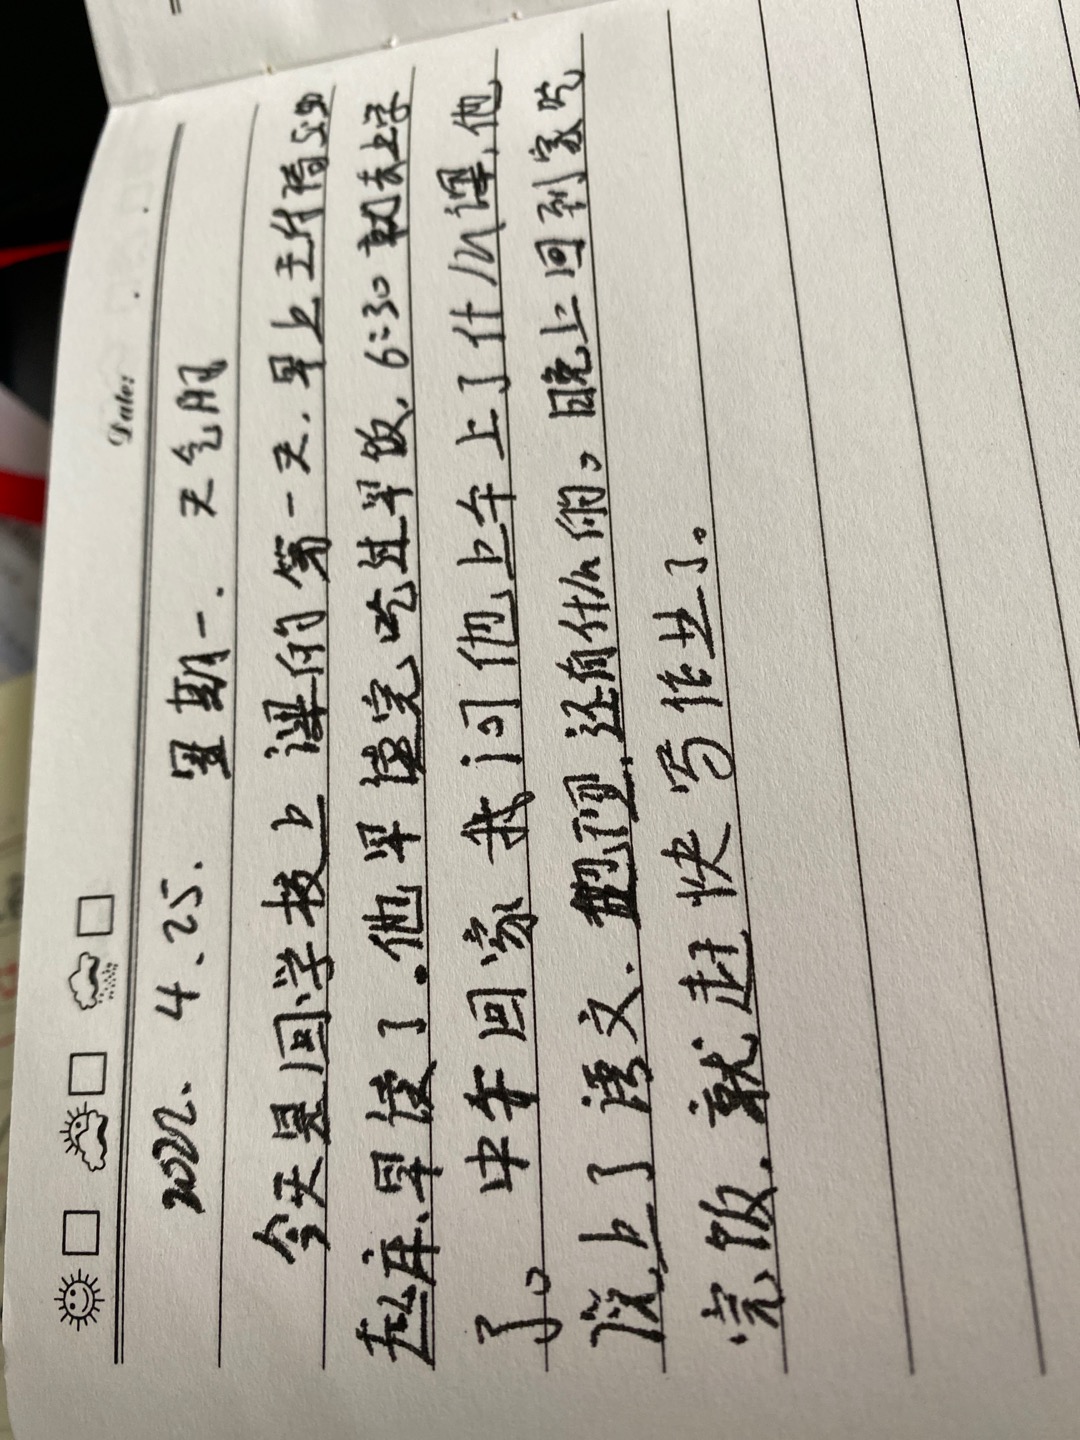 Date:
2022. 4. 25. 星期一. 天气阴
今天是回学校上课的第一天. 早上王梓
起床、早读了. 他早读完吃过早饭. 6:30 就去上学
了。 中午回家我问他上午上了什么课, 他
说上了语文. 还有什么的。晚上回到家吃
完饭. 就赶快写作业了。